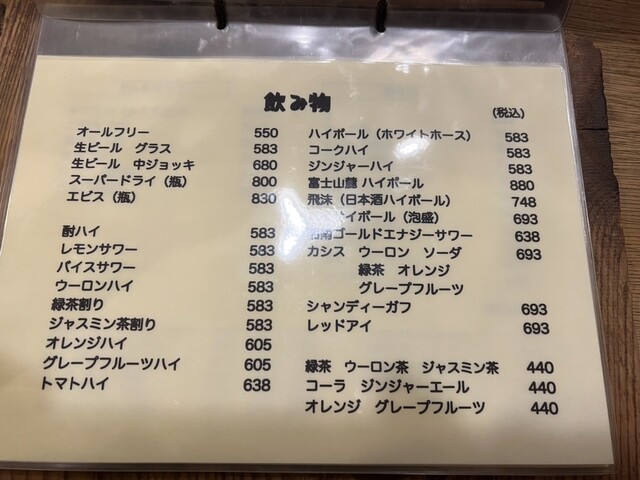 飲み物
(税込)
オールフリー 550
生ビール グラス 583
生ビール 中ジョッキ 680
スーパードライ（瓶） 800
エビス（瓶） 830
酎ハイ 583
レモンサワー 583
バイスサワー 583
ウーロンハイ 583
緑茶割り 583
ジャスミン茶割り 583
オレンジハイ 605
グレープフルーツハイ 605
トマトハイ 638
ハイボール（ホワイトホース） 583
コークハイ 583
ジンジャーハイ 583
富士山麓 ハイボール 880
飛沫（日本酒ハイボール） 748
イボール（泡盛） 693
ゴールドエナジーサワー 638
カシス ウーロン ソーダ 693
緑茶 オレンジ
グレープフルーツ
シャンディーガフ 693
レッドアイ 693
緑茶 ウーロン茶 ジャスミン茶 440
コーラ ジンジャーエール 440
オレンジ グレープフルーツ 440